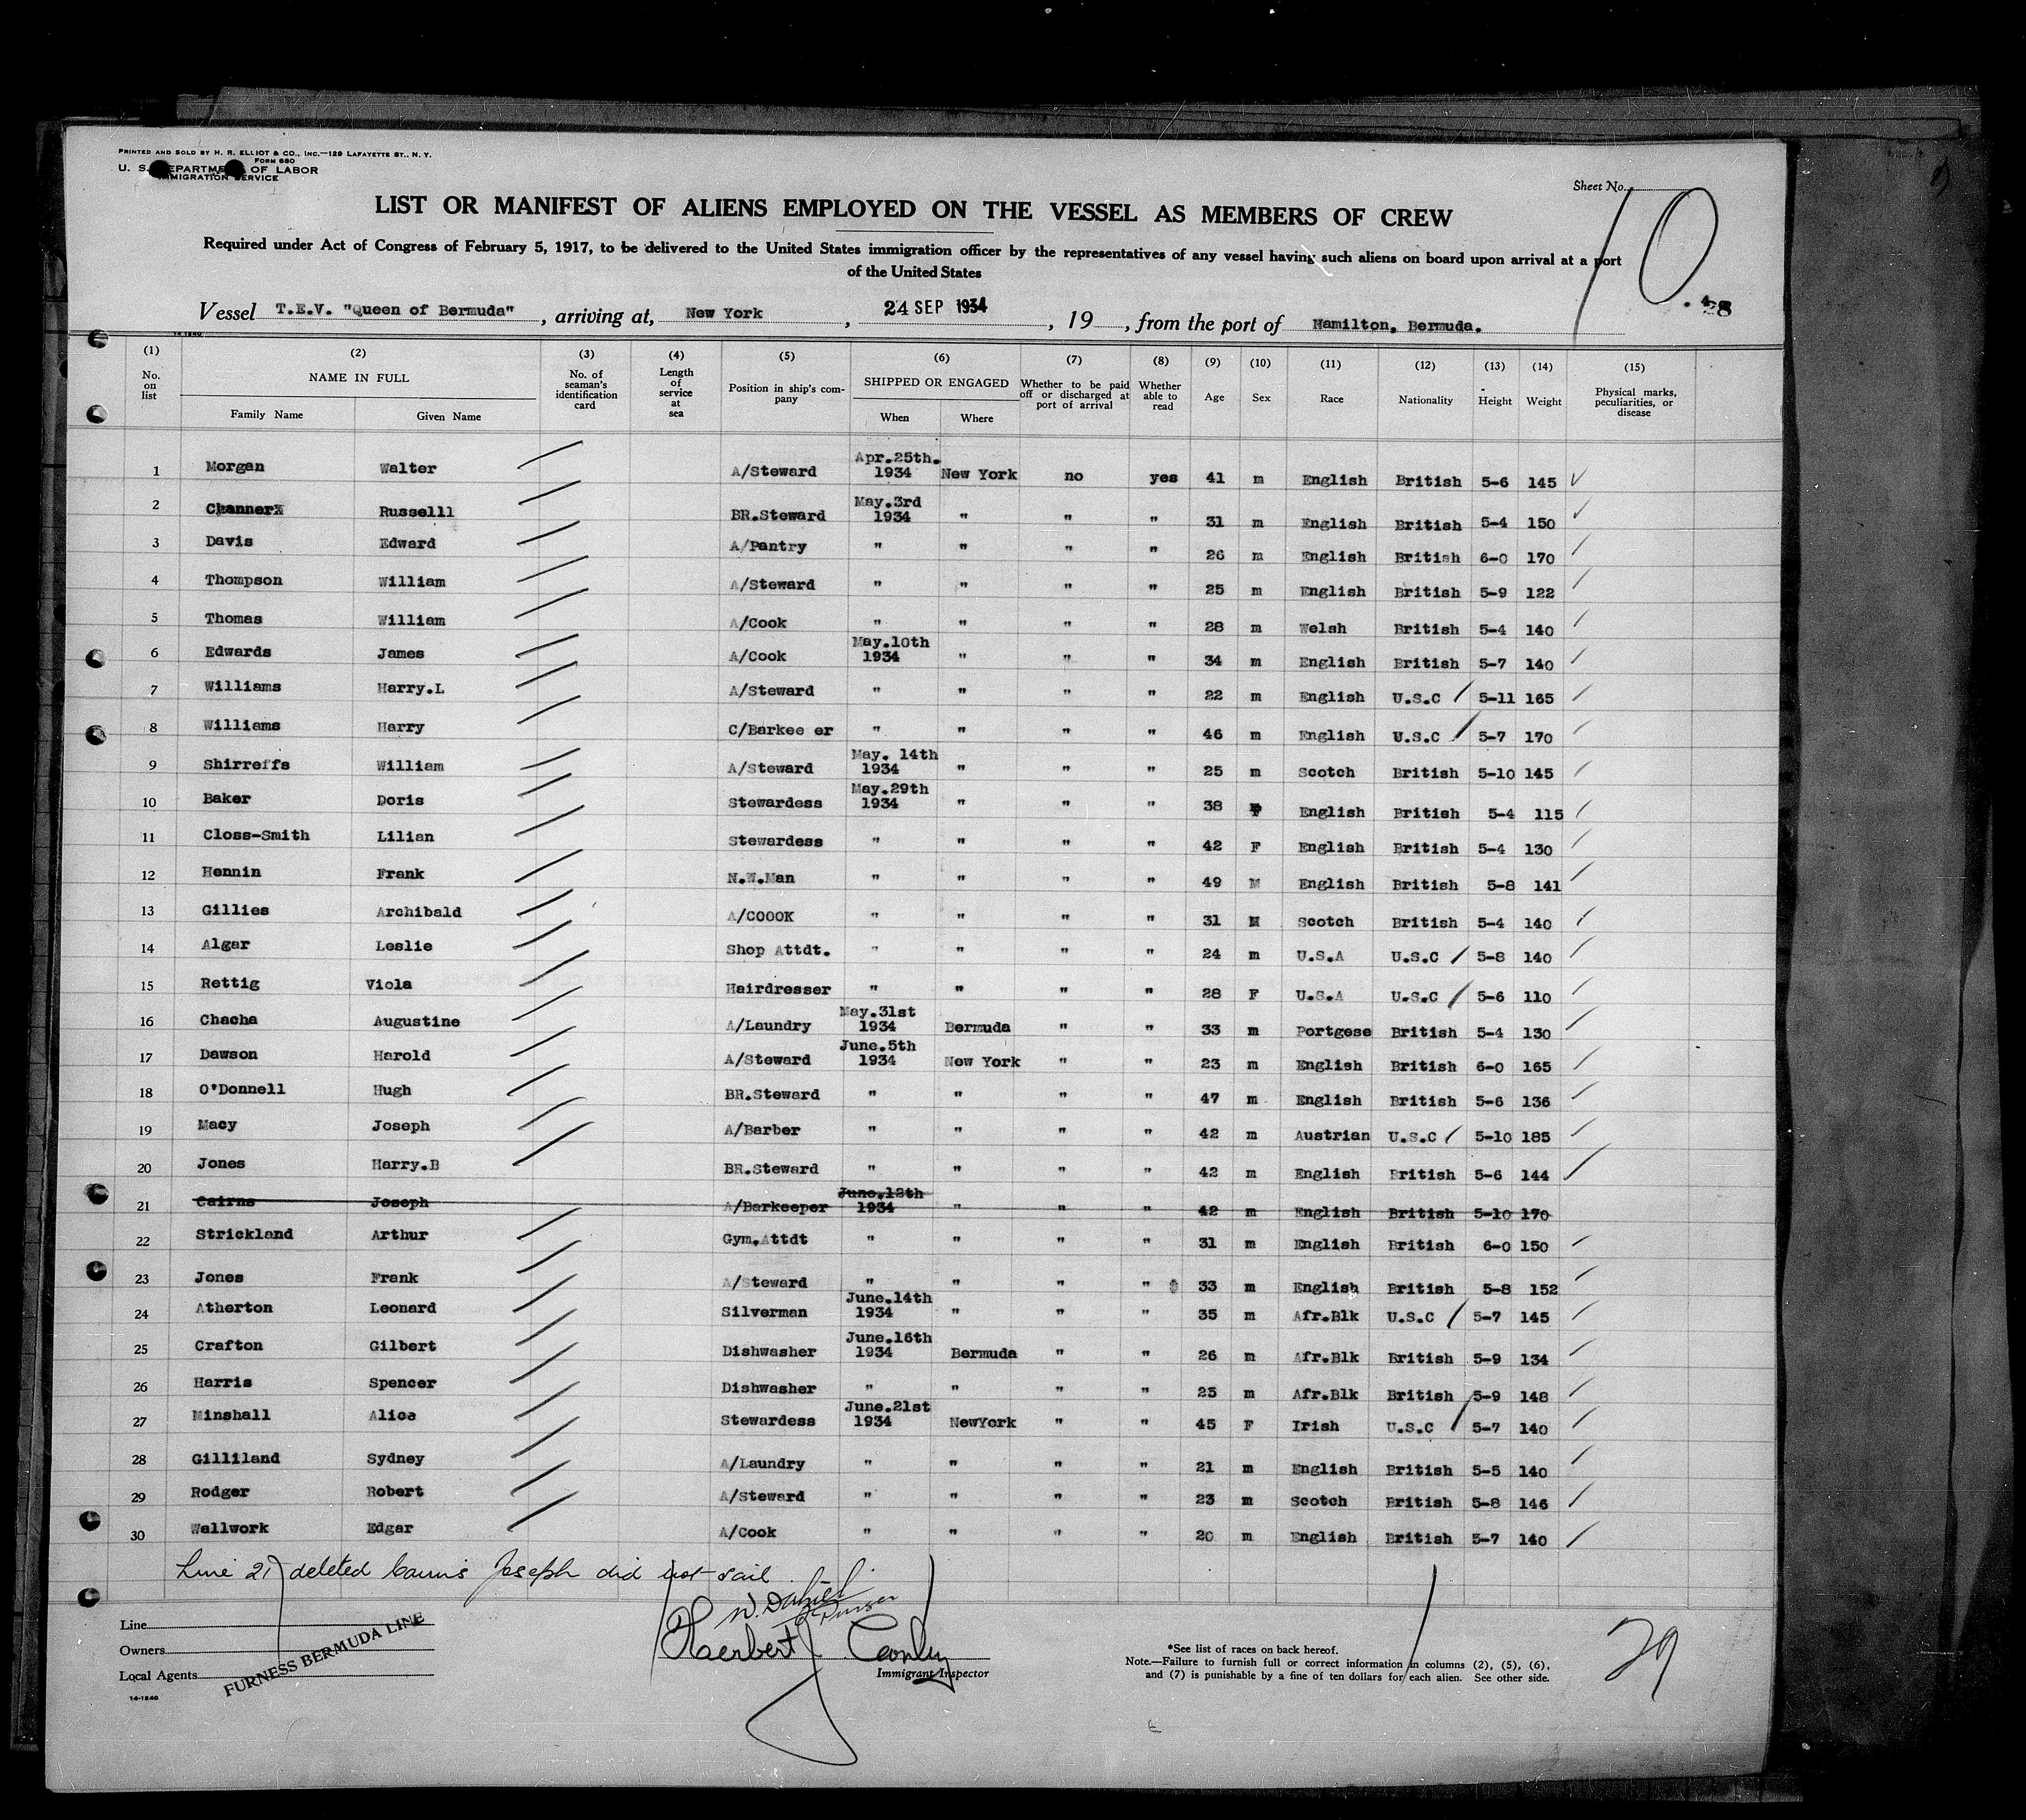 PRINTED AND SOLD BY H. R. ELLIOT & CO., INC.—129 LAFAYETTE ST., N. Y.
FORM 680
U. S. DEPARTMENT OF LABOR
IMMIGRATION SERVICE
Sheet No. 10
LIST OR MANIFEST OF ALIENS EMPLOYED ON THE VESSEL AS MEMBERS OF CREW
Required under Act of Congress of February 5, 1917, to be delivered to the United States immigration officer by the representatives of any vessel having such aliens on board upon arrival at a port
of the United States
Vessel T.E.V. "Queen of Bermuda", arriving at, New York, 24 SEP 1934, 19, from the port of Hamilton, Bermuda.
14-1240
(1) (2) (3) (4) (5) (6) (7) (8) (9) (10) (11) (12) (13) (14) (15)
No. on list NAME IN FULL Family Name Given Name No. of seaman's identification card Length of service at sea Position in ship's company SHIPPED OR ENGAGED When Where Whether to be paid off or discharged at port of arrival Whether able to read Age Sex Race Nationality Height Weight Physical marks, peculiarities, or disease
1 Morgan Walter A/Steward Apr.25th. 1934 New York no yes 41 m English British 5-6 145
2 Channer Russelll BR.Steward May.3rd 1934 " " " 31 m English British 5-4 150
3 Davis Edward A/Pantry " " " " 26 m English British 6-0 170
4 Thompson William A/Steward " " " " 25 m English British 5-9 122
5 Thomas William A/Cook " " " " 28 m Welsh British 5-4 140
6 Edwards James A/Cook May.10th 1934 " " " 34 m English British 5-7 140
7 Williams Harry.L A/Steward " " " " 22 m English U.S.C 5-11 165
8 Williams Harry C/Barkee er " " " " 46 m English U.S.C 5-7 170
9 Shirreffs William A/Steward May. 14th 1934 " " " 25 m Scotch British 5-10 145
10 Baker Doris Stewardess May.29th 1934 " " " 38 English British 5-4 115
11 Closs-Smith Lilian Stewardess " " " " 42 F English British 5-4 130
12 Hennin Frank N.W.Man " " " " 49 M English British 5-8 141
13 Gillies Archibald A/COOOK " " " " 31 M Scotch British 5-4 140
14 Algar Leslie Shop Attdt. " " " " 24 m U.S.A U.S.C 5-8 140
15 Rettig Viola Hairdresser " " " " 28 F U.S.A U.S.C 5-6 110
16 Chacha Augustine A/Laundry May.31st 1934 Bermuda " " 33 m Portgese British 5-4 130
17 Dawson Harold A/Steward June.5th 1934 New York " " 23 m English British 6-0 165
18 O'Donnell Hugh BR.Steward " " " " 47 m English British 5-6 136
19 Macy Joseph A/Barber " " " " 42 m Austrian U.S.C 5-10 185
20 Jones Harry.B BR.Steward " " " " 42 m English British 5-6 144
21 Cairns Joseph A/Barkeeper June.12th 1934 " " " 42 m English British 5-10 170
22 Strickland Arthur Gym.Attdt " " " " 31 m English British 6-0 150
23 Jones Frank A/Steward " " " " 33 m English British 5-8 152
24 Atherton Leonard Silverman June.14th 1934 " " " 35 m Afr.Blk U.S.C 5-7 145
25 Crafton Gilbert Dishwasher June.16th 1934 Bermuda " " 26 m Afr.Blk British 5-9 134
26 Harris Spencer Dishwasher " " " " 25 m Afr.Blk British 5-9 148
27 Minshall Alice Stewardess June.21st 1934 NewYork " " 45 F Irish U.S.C 5-7 140
28 Gilliland Sydney A/Laundry " " " " 21 m English British 5-5 140
29 Rodger Robert A/Steward " " " " 23 m Scotch British 5-8 146
30 Wallwork Edgar A/Cook " " " " 20 m English British 5-7 140
Line 21 deleted Cairns Joseph did not sail
Purser
Line
Owners
Local Agents
FURNESS BERMUDA LINE
14-1240
Herbert J Conley
Immigrant Inspector
*See list of races on back hereof.
Note.—Failure to furnish full or correct information in columns (2), (5), (6),
and (7) is punishable by a fine of ten dollars for each alien. See other side.
29